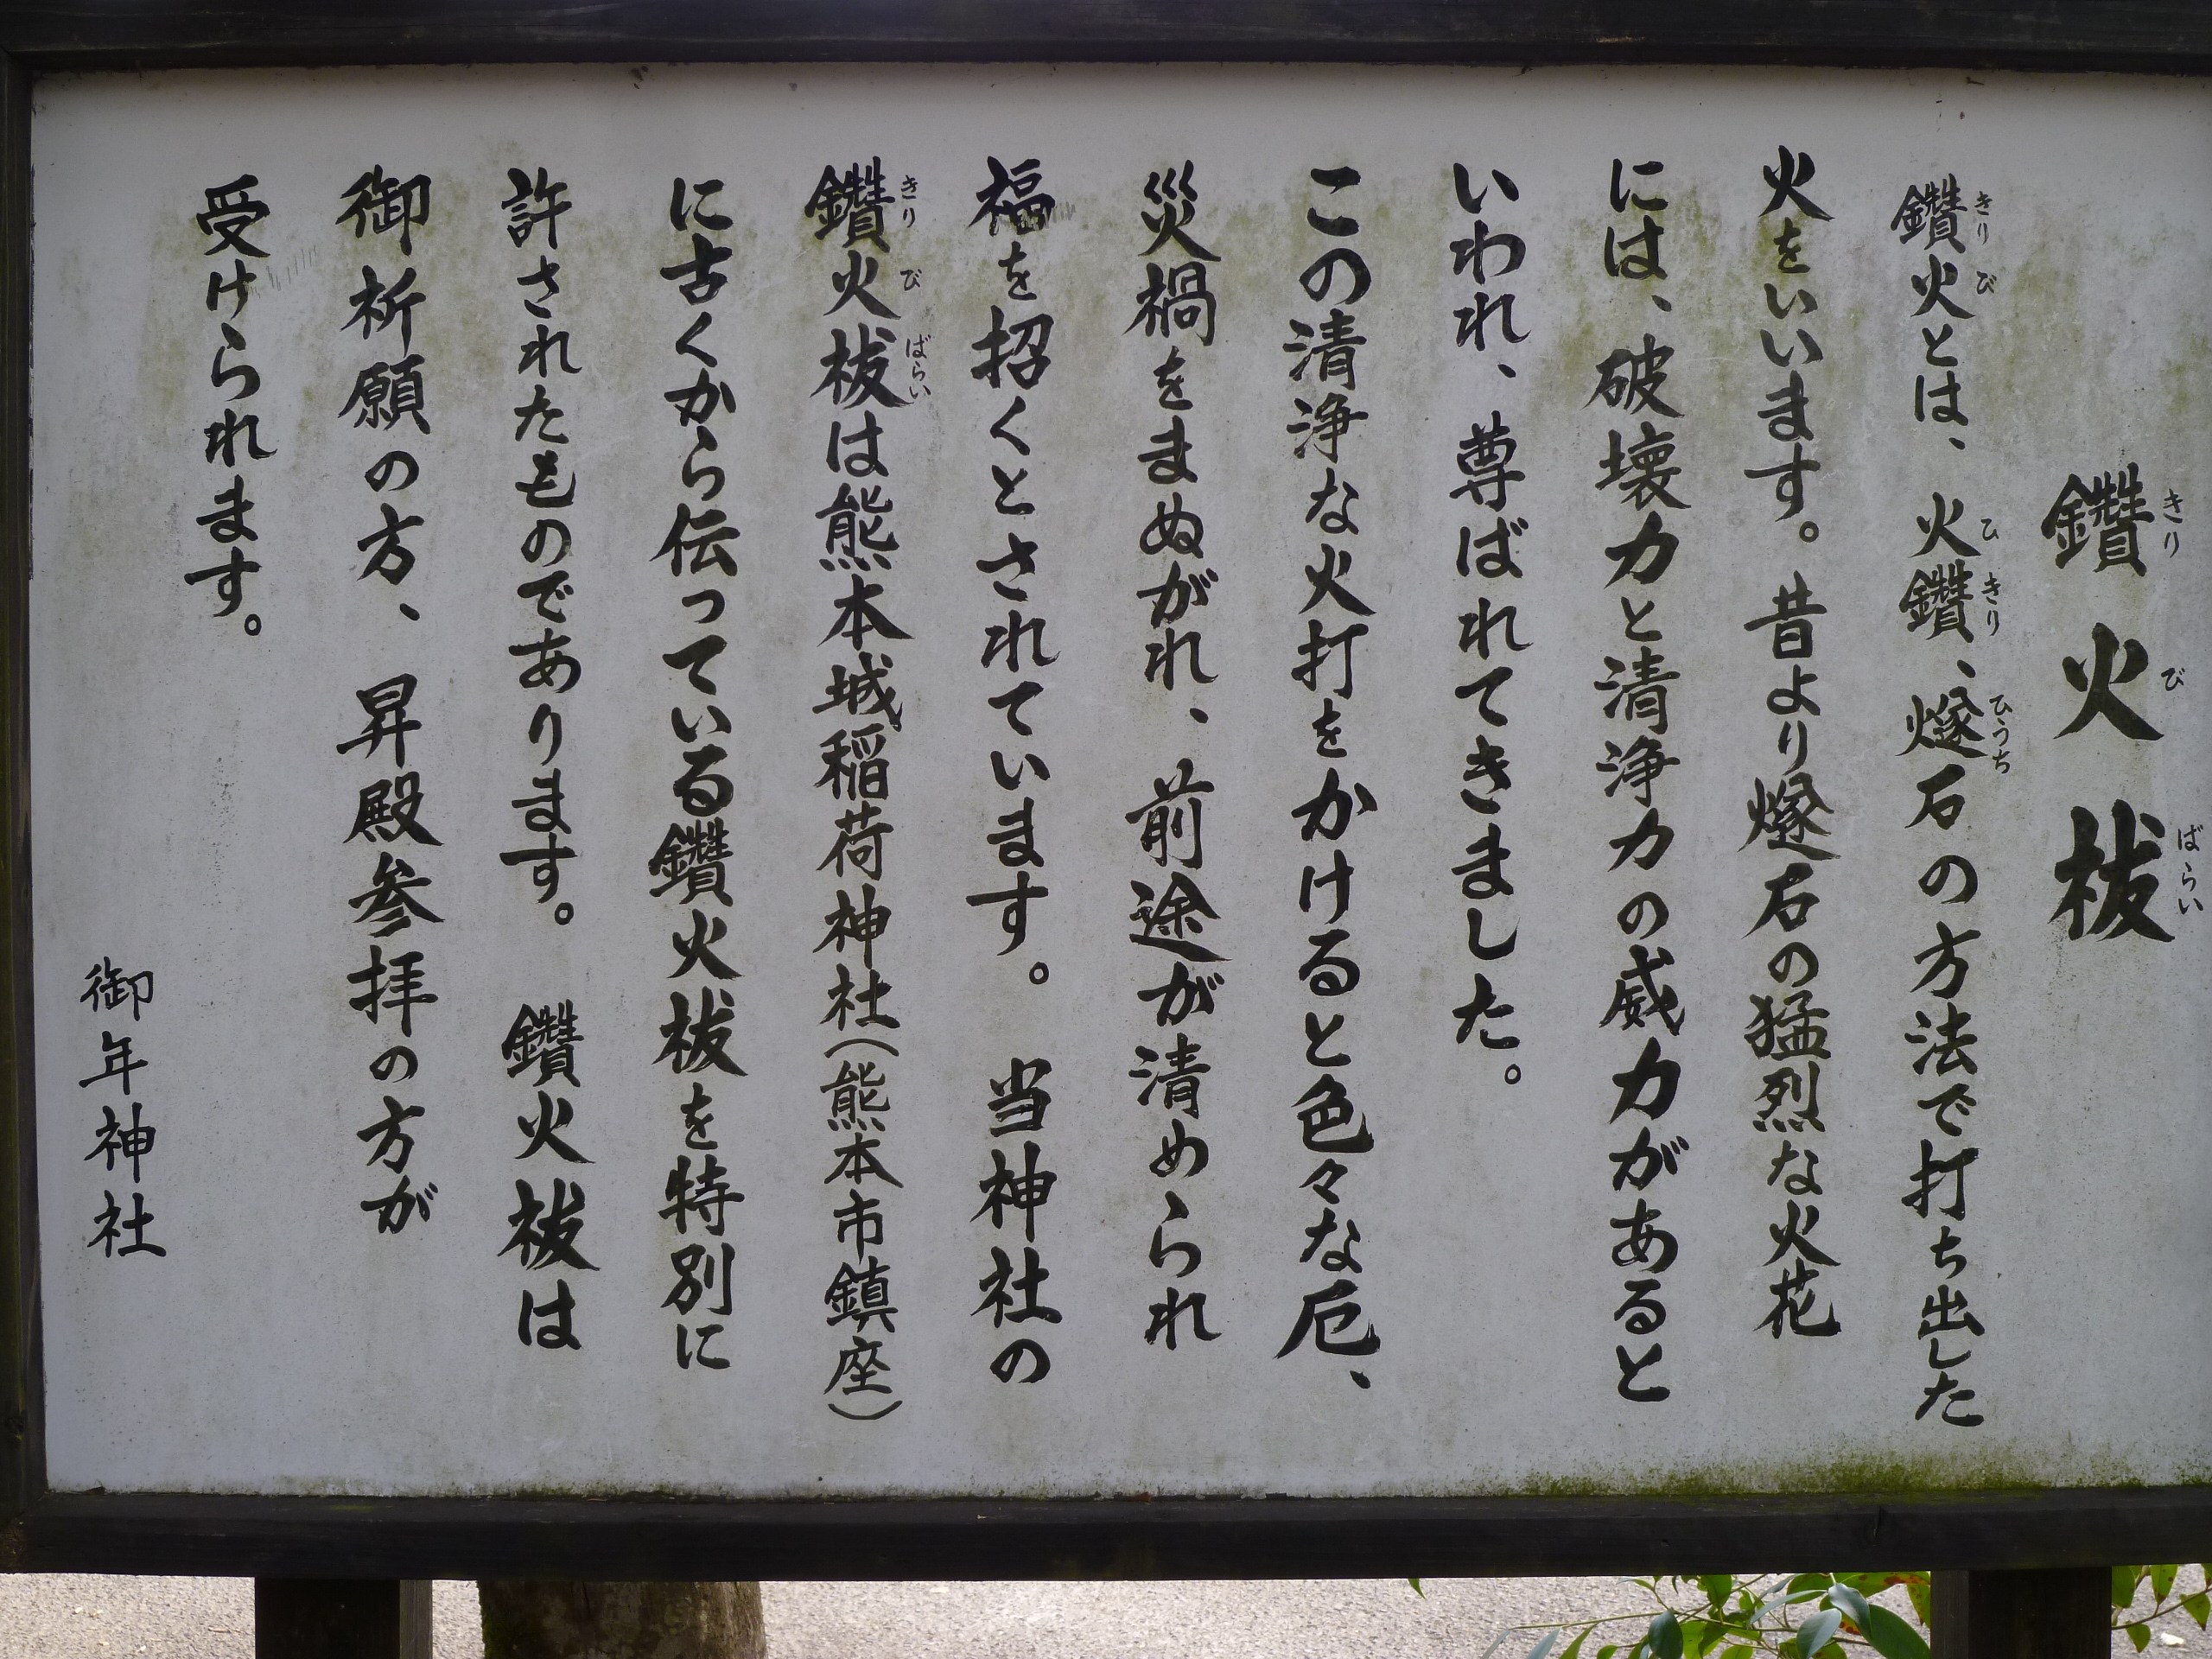 鑽火祓
鑽火とは、火鑽、燧石の方法で打ち出した
火をいいます。昔より燧石の猛烈な火花
には、破壊力と清浄力の威力があると
いわれ、尊ばれてきました。
この清浄な火打をかけると色々な厄、
災禍をまぬがれ、前途が清められ
福を招くとされています。当神社の
鑽火祓は熊本城稲荷神社(熊本市鎮座)
に古くから伝っている鑽火祓を特別に
許されたものであります。鑽火祓は
御祈願の方、昇殿参拝の方が
受けられます。
御年神社